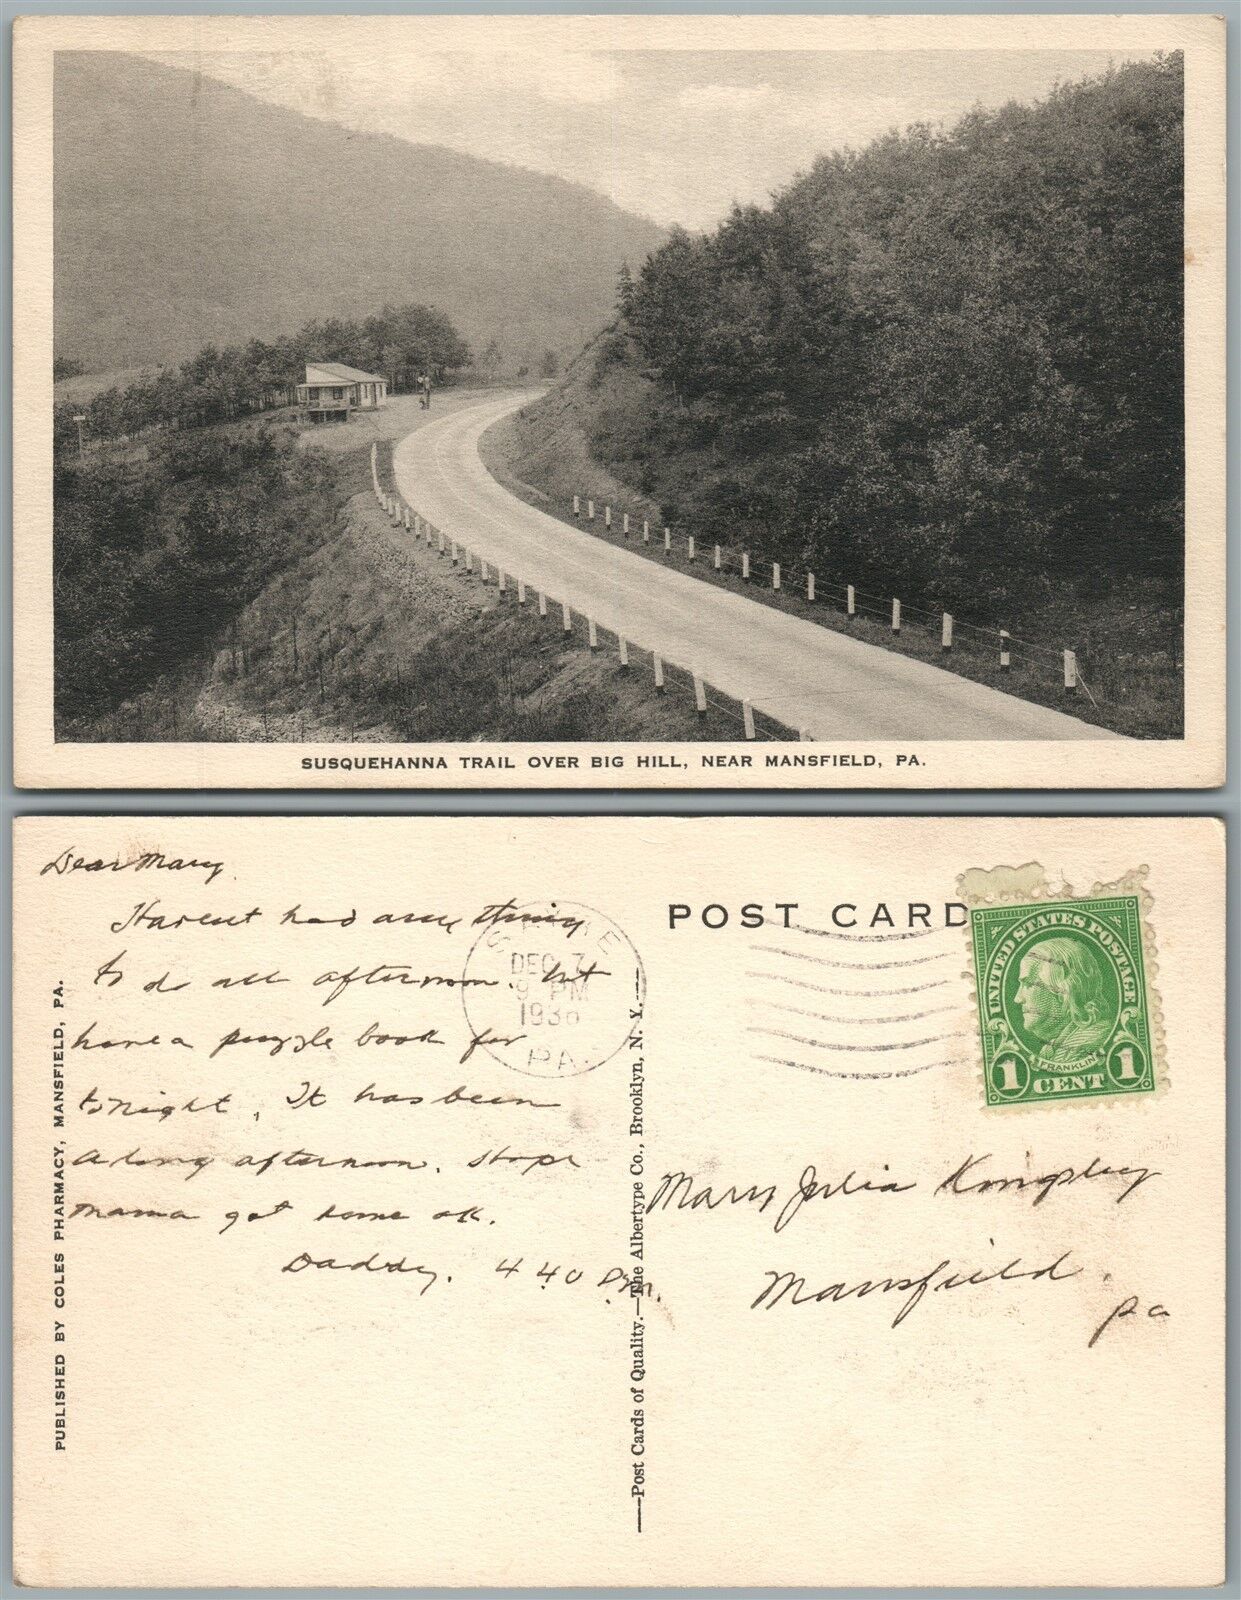 SUSQUEHANNA TRAIL OVER BIG HILL, NEAR MANSFIELD, PA.
Dear Mary
Havent had any thing
to do all afternoon. but
have a puzzle book for
tonight, It has been
a long afternoon. Hope
mama got home ok.
Daddy. 4 40 P.M.
PUBLISHED BY COLES PHARMACY, MANSFIELD, PA.
SAYRE
DEC 7
9 PM
1936
PA.
—Post Cards of Quality.—The Albertype Co., Brooklyn, N. Y.—
POST CARD
UNITED STATES POSTAGE
FRANKLIN
1 CENT 1
Mary Julia Kingsley
Mansfield.
Pa